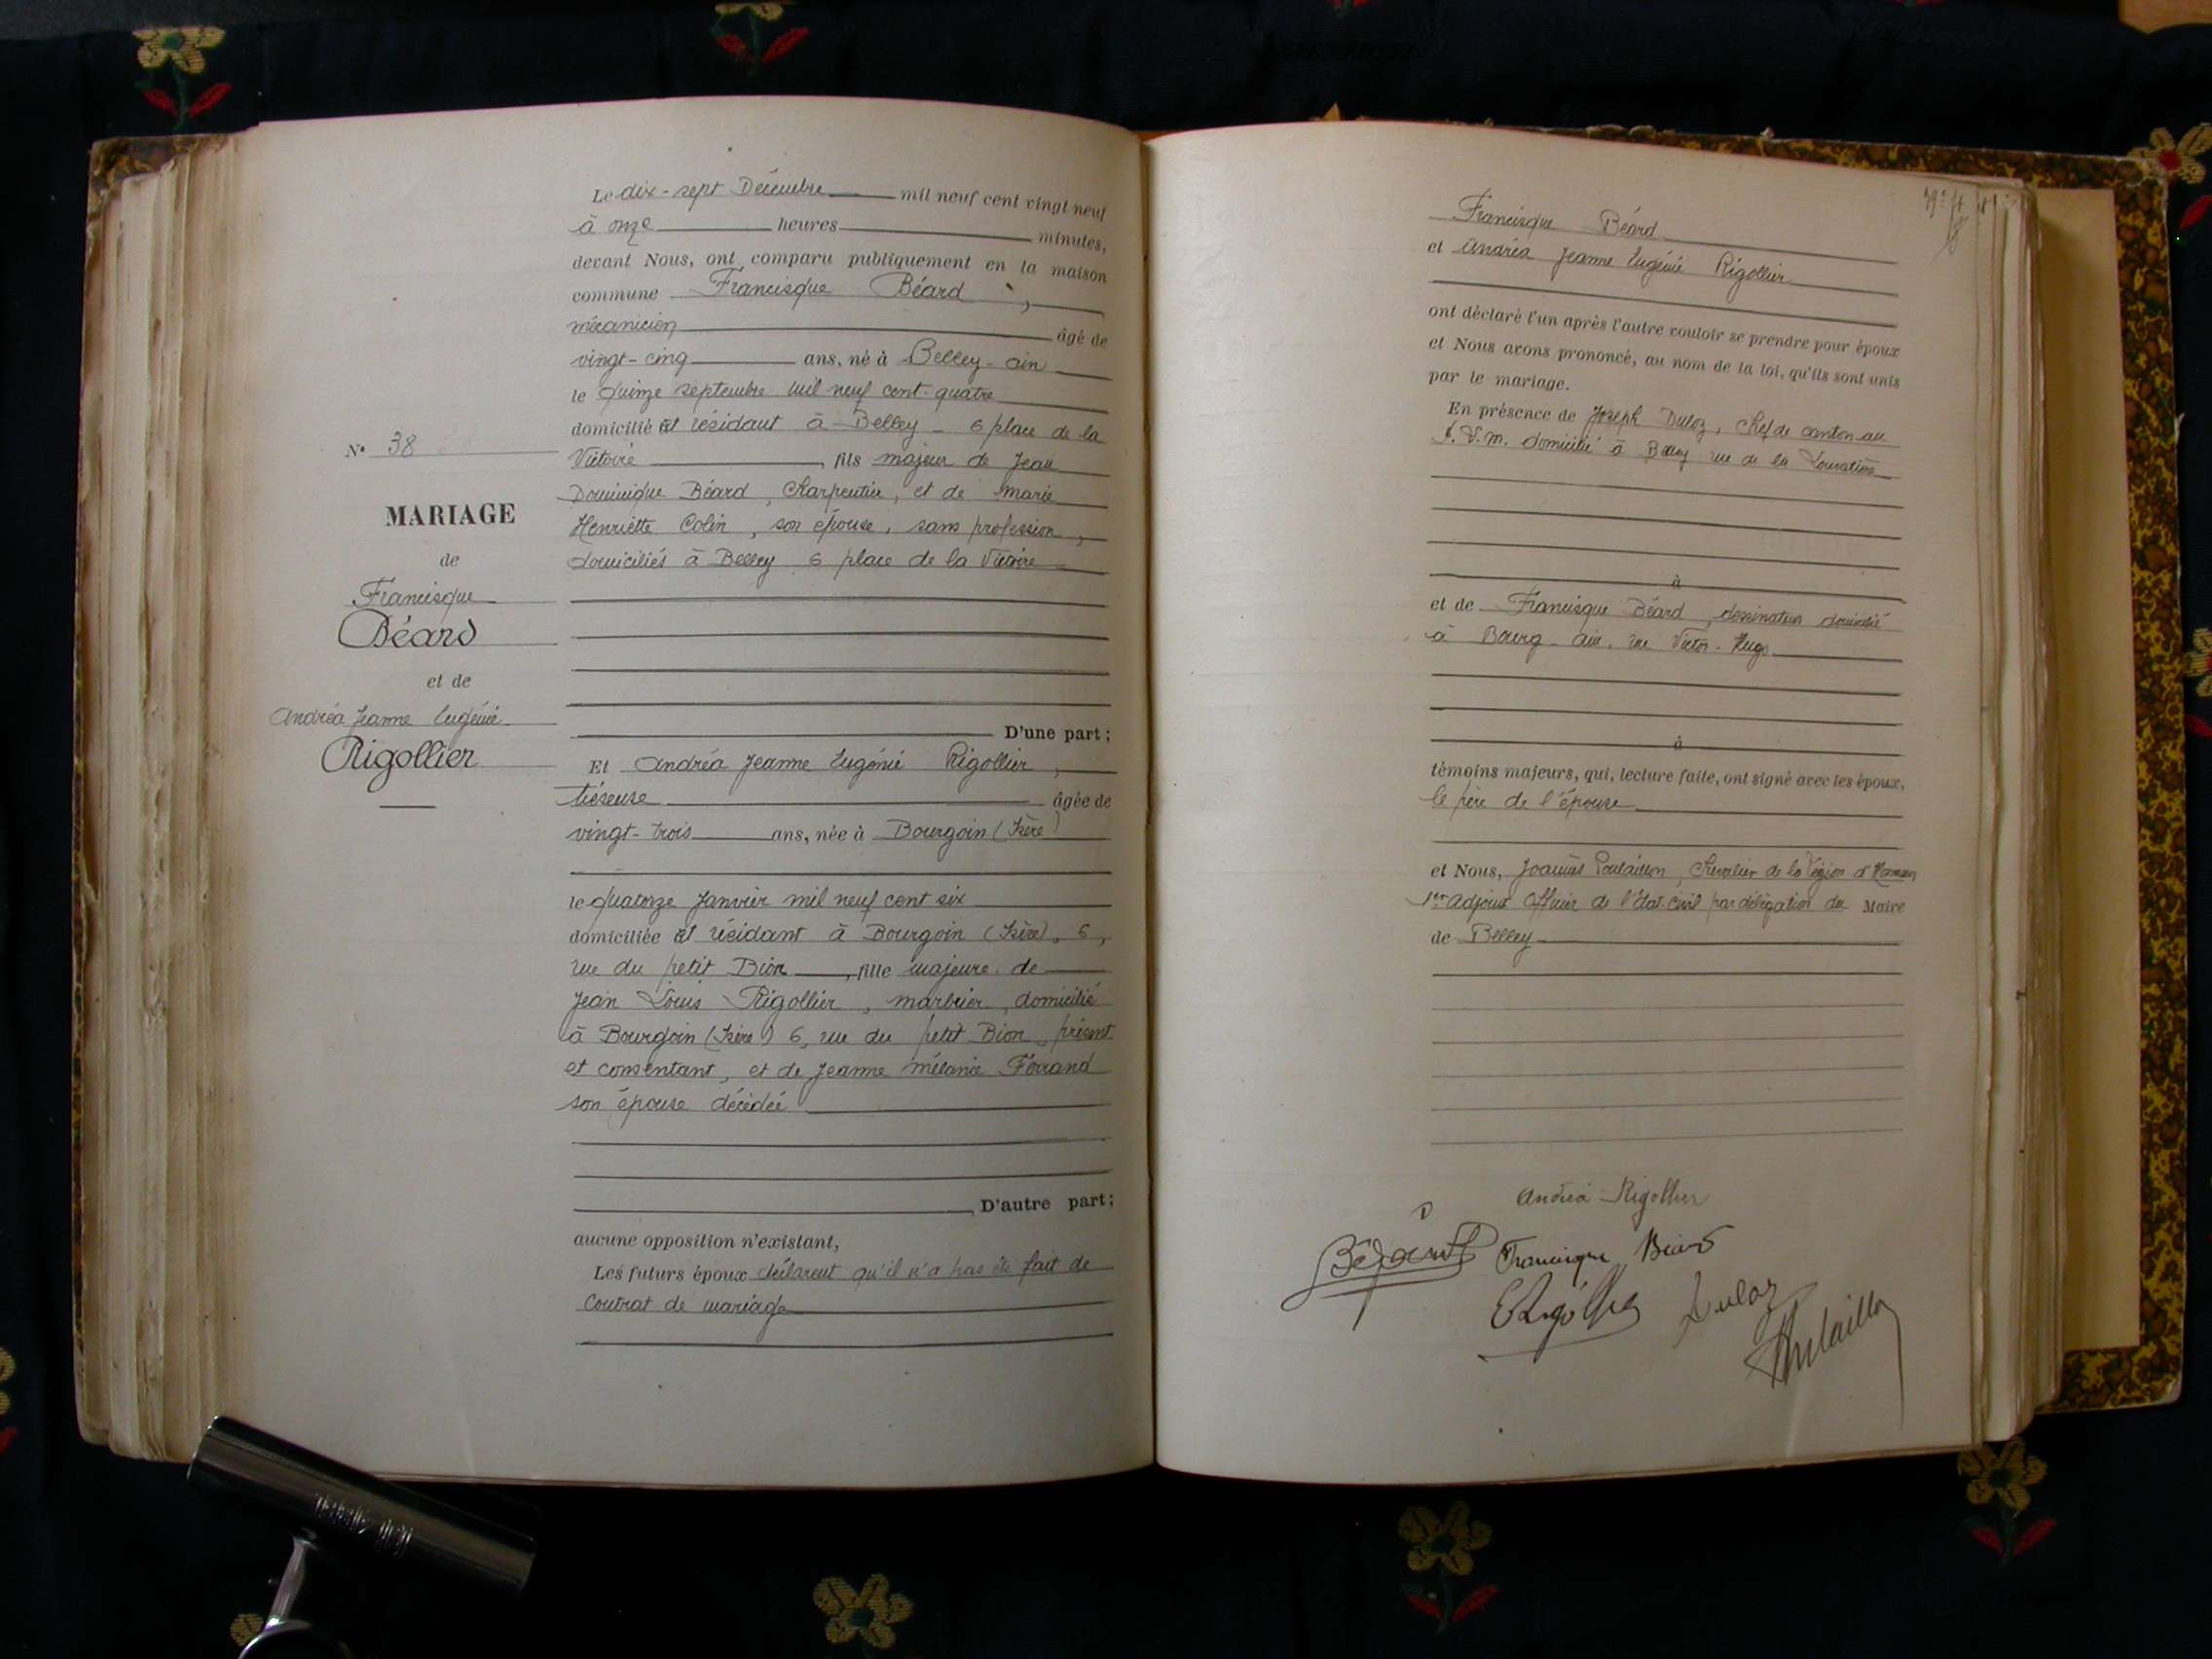 Le dix-sept Décembre mil neuf cent vingt neuf
à onze heures minutes,
devant Nous, ont comparu publiquement en la maison
commune Francisque Béard,
mécanicien âgé de
vingt-cinq ans, né à Belley-ain
le quinze septembre mil neuf cent-quatre
domicilié et résidant à Belley - 6 place de la
Victoire, fils majeur de Jean
Dominique Béard, Charpentier, et de Marie
Henriette Colin, son épouse, sans profession,
domiciliés à Belley 6 place de la Victoire
N° 38
MARIAGE
de
Francisque
Béard
et de
Andréa Jeanne Eugénie
Rigollier
D'une part;
Et Andréa Jeanne Eugénie Rigollier,
tisseuse âgée de
vingt-trois ans, née à Bourgoin (Isère)
le quatorze Janvier mil neuf cent six
domiciliée et résidant à Bourgoin (Isère), 6,
rue du petit Bion, fille majeure de
Jean Louis Rigollier, marbrier, domicilié
à Bourgoin (Isère) 6, rue du petit Bion, présent
et consentant, et de Jeanne mélanie Ferrand
son épouse décédée
D'autre part;
aucune opposition n'existant,
Les futurs époux déclarent qu'il n'a pas été fait de
Contrat de mariage
Francisque Béard
et Andréa Jeanne Eugénie Rigollier
ont déclaré l'un après l'autre vouloir se prendre pour époux
et Nous avons prononcé, au nom de la loi, qu'ils sont unis
par le mariage.
En présence de Joseph Duloz, Chef de canton au
domicilié à Belley rue de la
à
et de Francisque Béard, dessinateur domicilié
à Bourg-ain, rue Victor-Hugo
à
témoins majeurs, qui, lecture faite, ont signé avec les époux,
le père de l'épouse
et Nous, Chevalier de la Légion d'Honneur
1er adjoint officier de l'Etat-Civil par délégation du Maire
de Belley
Andréa Rigollier
Francisque Béard
Duloz